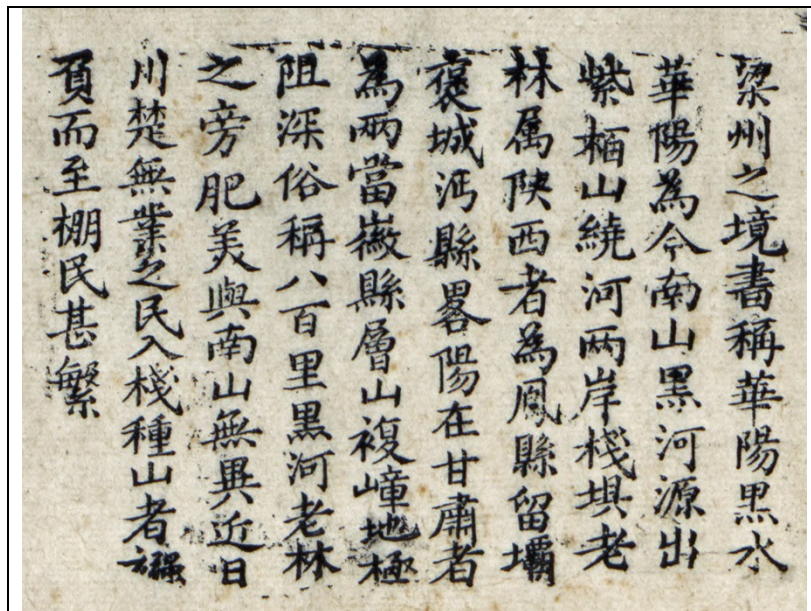 梁州之境書稱華陽黒水
華陽為今南山黒河源出
紫栢山繞河兩岸棧垻老
林属陕西者為鳳縣留壩
褒城沔縣畧陽在甘肅者
為兩當徽縣層山複嶂地極
阻深俗稱八百里黒河老林
之旁肥美與南山無異近日
川楚無業之民入棧種山者襁
負而至棚民甚繁